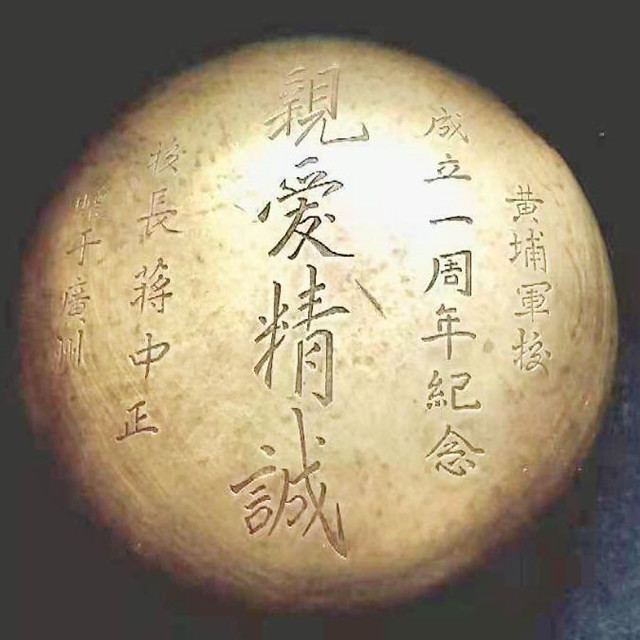 黃埔軍校
成立一周年紀念
親愛精誠
校長蔣中正
于廣州